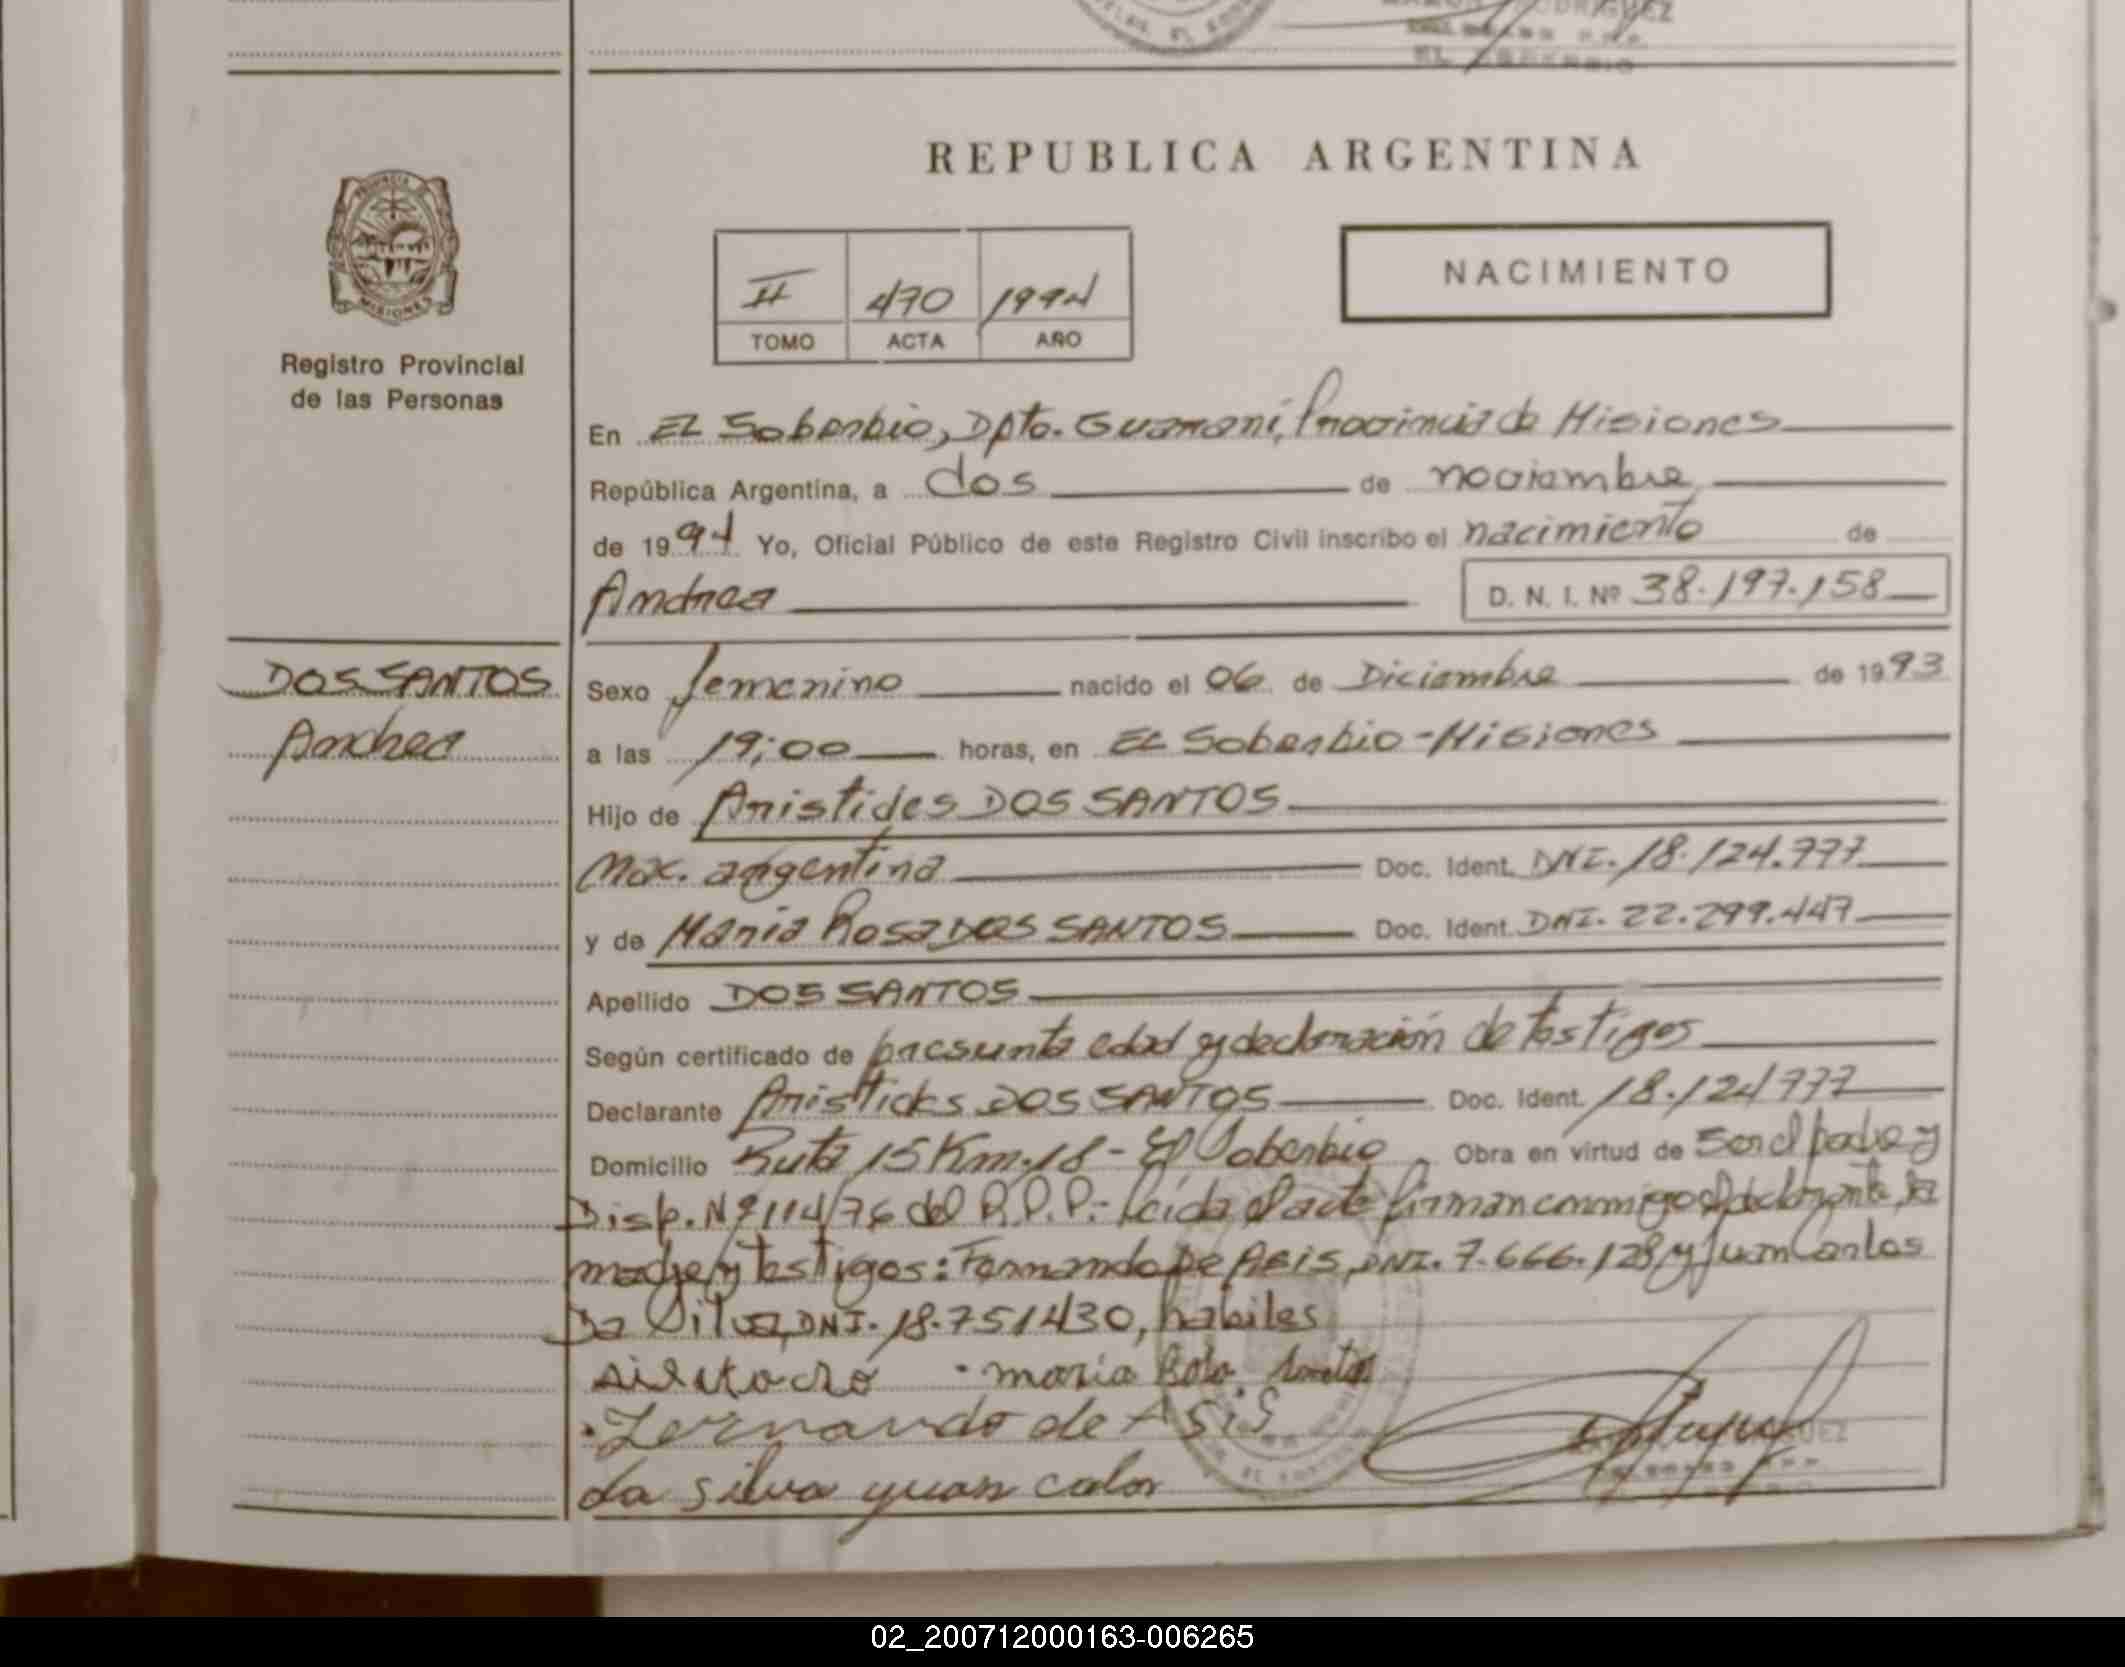 REPUBLICA ARGENTINA
PROVINCIA DE
MISIONES
Registro Provincial
de las Personas
II 470 1994
TOMO ACTA AÑO
NACIMIENTO
En EL Soberbio, Dpto. Guarani, Provincia de Misiones
República Argentina, a dos de noviembre
de 1994 Yo, Oficial Público de este Registro Civil inscribo el nacimiento de
Andrea D. N. I. Nº 38.197.158
DOS SANTOS
Andrea
Sexo femenino nacido el 06 de Diciembre de 1993
a las 19;00 horas, en EL Soberbio - Misiones
Hijo de Aristides DOS SANTOS
Nac. argentina Doc. Ident. DNI. 18.124.777
y de Maria Rosa DOS SANTOS Doc. Ident. DNI. 22.299.447
Apellido DOS SANTOS
Según certificado de presunta edad y declaración de testigos
Declarante Aristides DOS SANTOS Doc. Ident. 18.124777
Domicilio Ruta 15 Km.18 - El Soberbio Obra en virtud de ser el padre y
Disp. Nº 114/76 del R.P.P.- leída el acta firman conmigo el declarante, la
madre y testigos: Fernando De Asis, DNI. 7.666.128 y Juan Carlos
Da Silva, DNI. 18.751430, habiles
maria Rosa
Fernando de Asis
da silva yuan calor
02_200712000163-006265